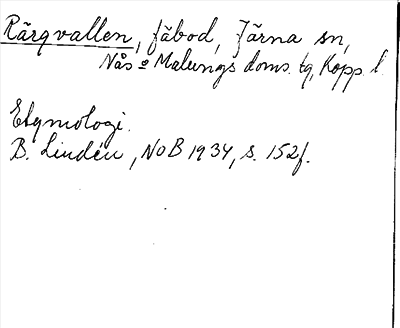 Rärqvallen, fäbod, Järna sn,
Nås o Malungs doms. tg, Kopp. l.
Etymologi.
B. Lindén, NoB 1934, s. 152f.